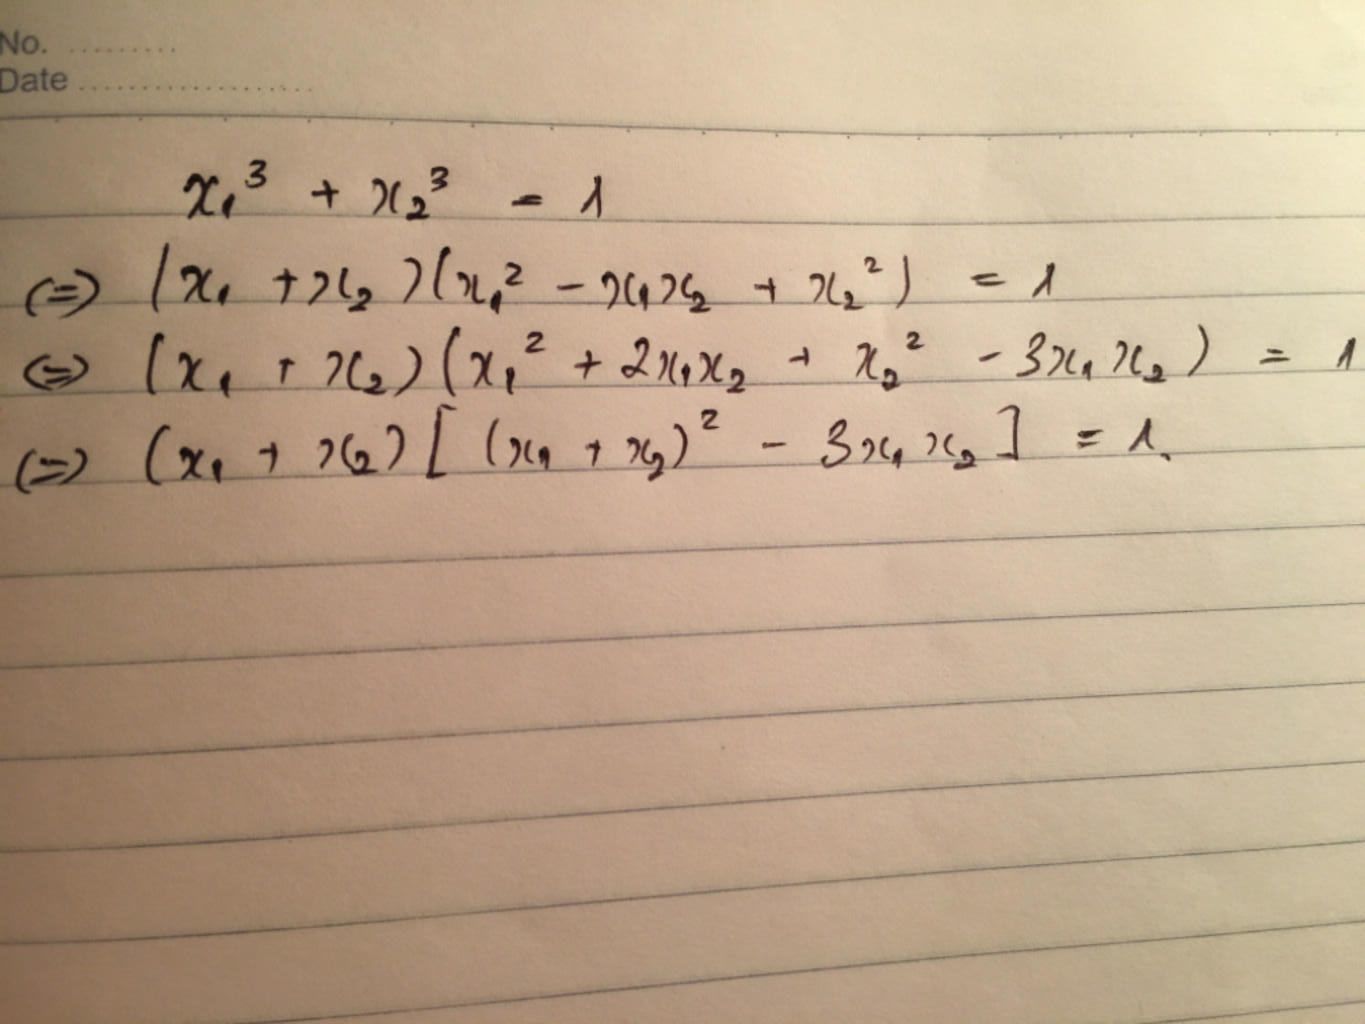 No. .........
Date ..................
x₁³ + x₂³ = 1
(=) (x₁ + x₂)(x₁² - x₁x₂ + x₂²) = 1
(=) (x₁ + x₂)(x₁² + 2x₁x₂ + x₂² - 3x₁x₂) = 1
(=) (x₁ + x₂)[(x₁ + x₂)² - 3x₁x₂] = 1.